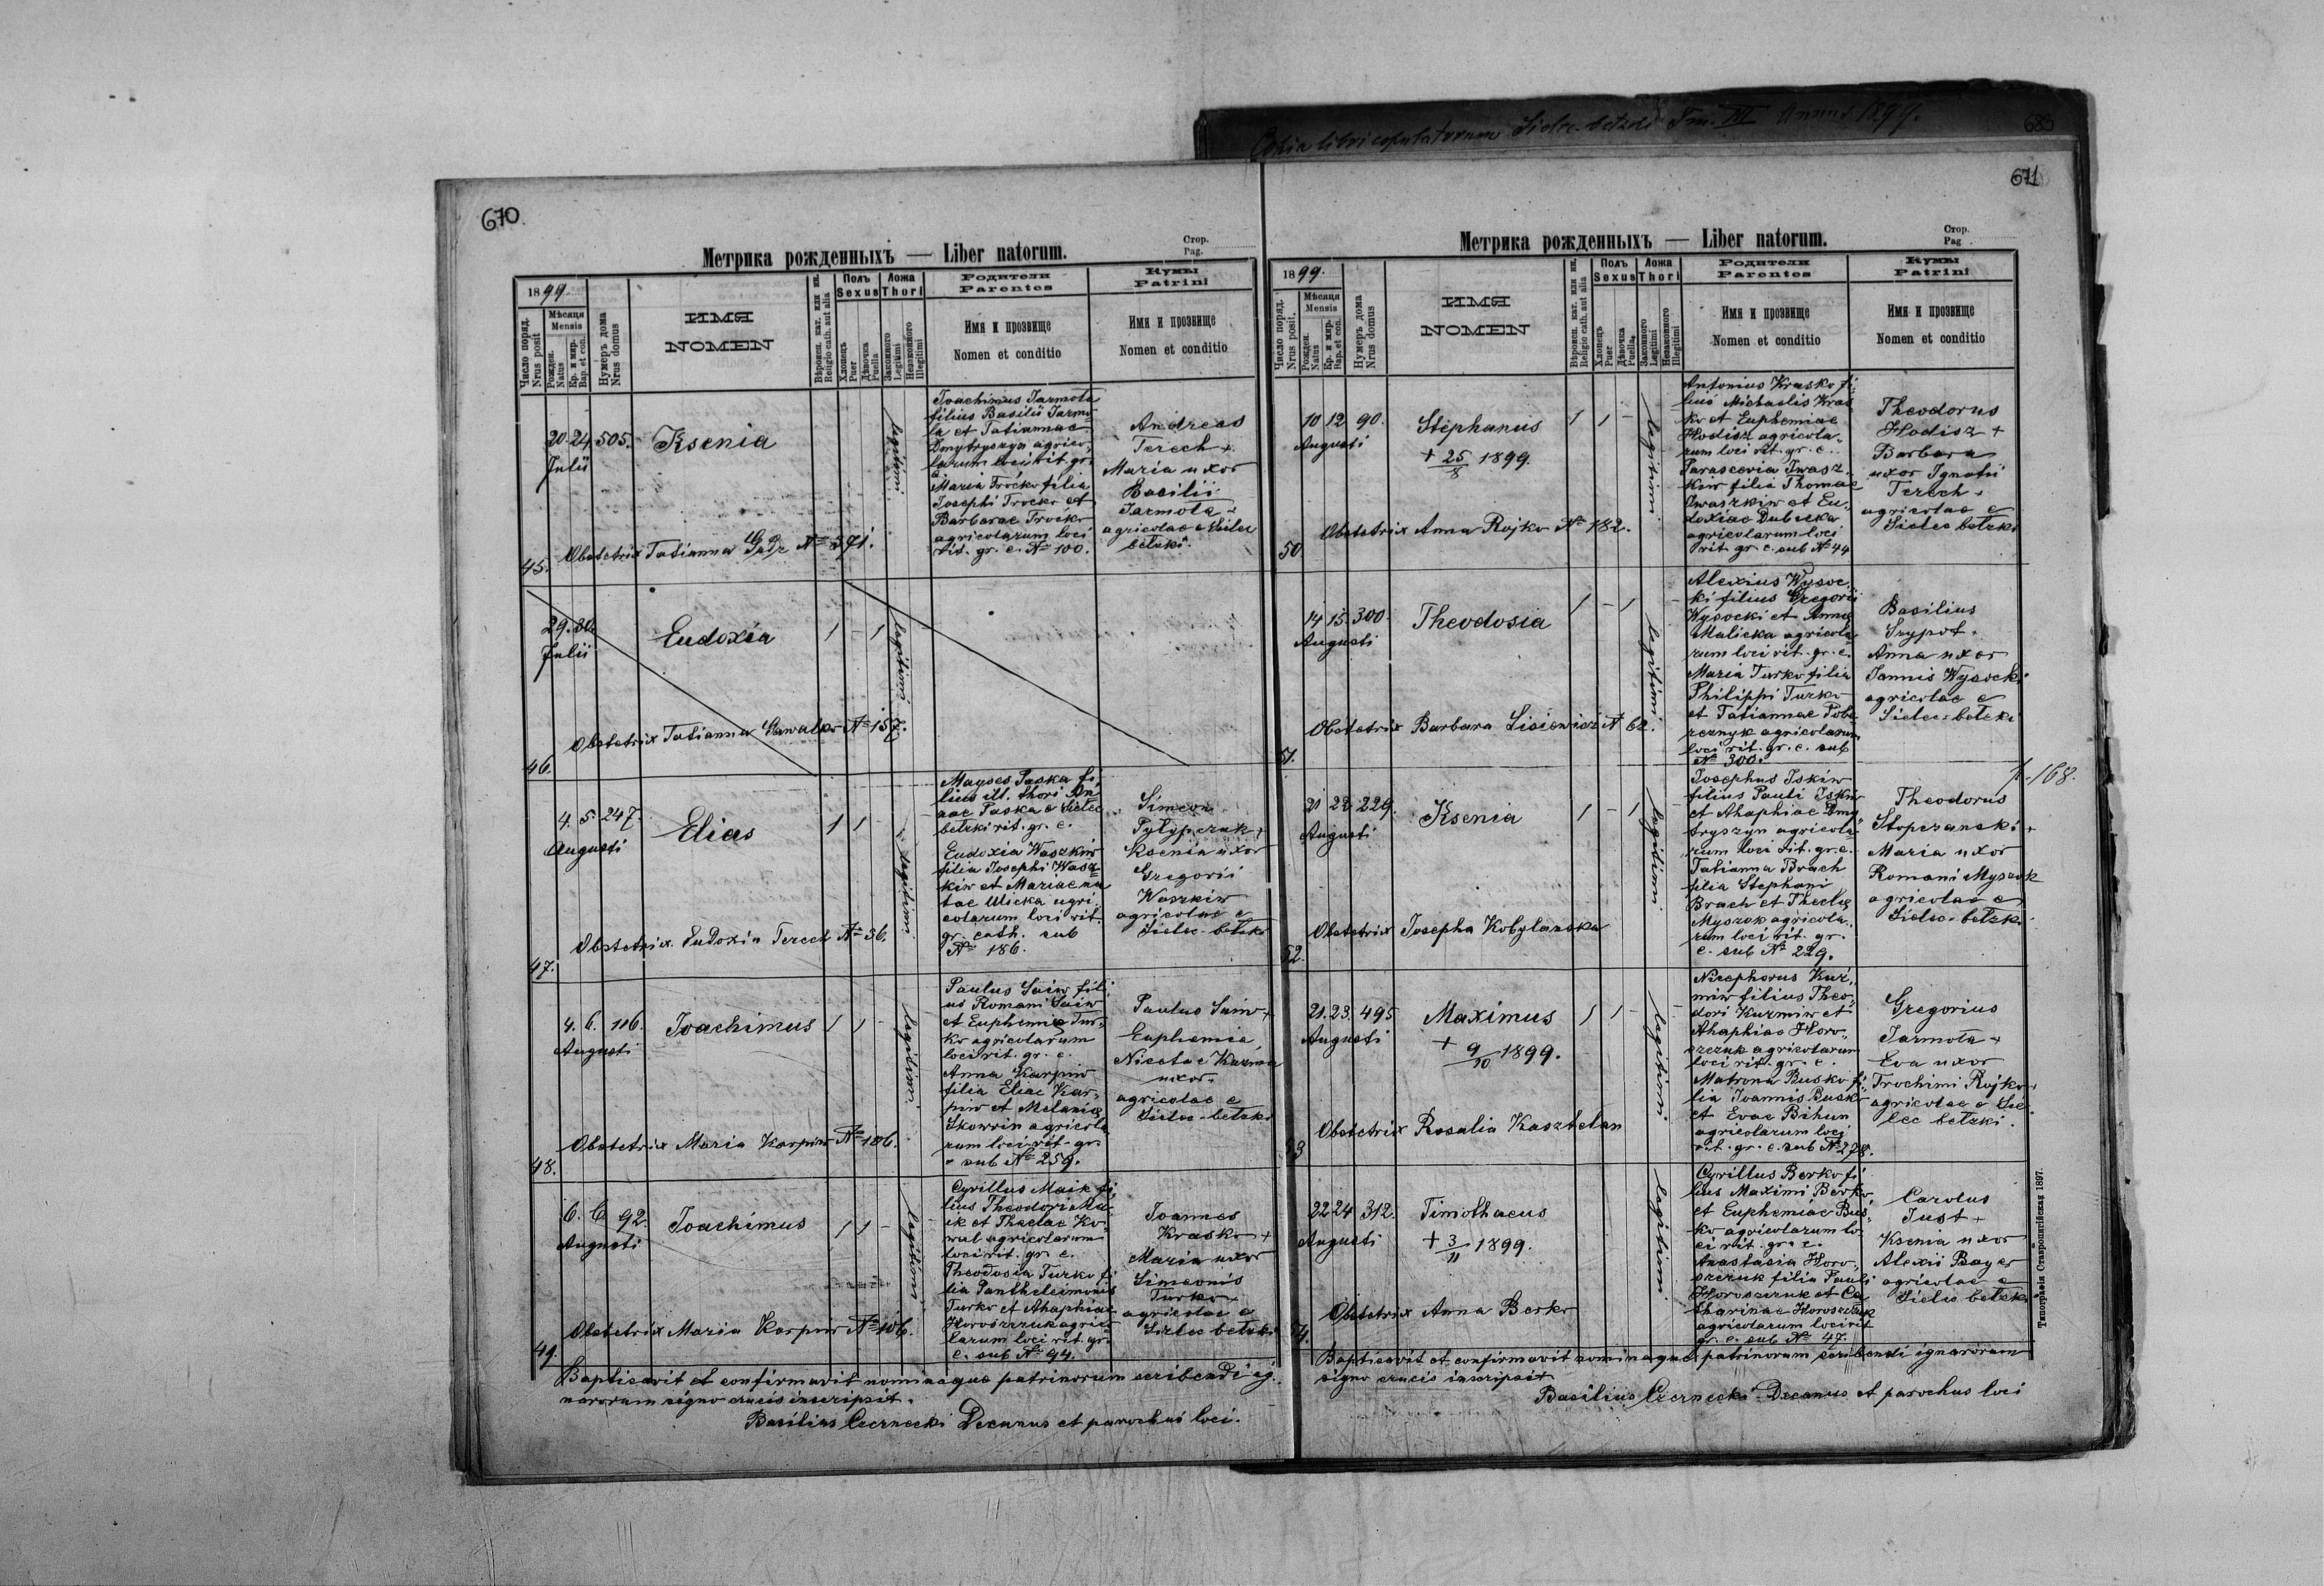 Copia libri copulatorum Sielec-betzki Tm. III Annus 1899.
683
670
Метрика рожденныхъ — Liber natorum.
Стор.
Pag.
1899.
Число поряд.
Nrus posit
Мѣсяця
Mensis
Рожден.
Natus
Кр. и мѵр.
Bap. et con.
Нумеръ дома
Nrus domus
ИМЯ
NOMEN
Вѣроисп. кат. или ин.
Religio cath. aut alia
Полъ
Sexus
Хлопець
Puer
Дѣвочка
Puella
Ложа
Thori
Законного
Legitimi
Незаконного
Illegitimi
Родители
Parentes
Имя и прозвище
Nomen et conditio
Кумы
Patrini
Имя и прозвище
Nomen et conditio
45.
20. 24. 505.
Julii
Ksenia
legitimi
Joachimus Jarmola
filius Basilii Jarmo-
la et Tatiannae
Dmytryszyn agrico-
larum loci rit. gr.
c.
Maria Trocko filia
Josephi Trocko et
Barbarae Trocko
agricolarum loci
rit. gr. c. № 100.
Andreas
Terech +
Maria uxor
Basilii
Jarmola +
agricolae e Sielec
betzki.
Obstetrix Tatianna № 371.
46.
29. 30.
Julii
Eudoxia
1 - 1
legitimi
Obstetrix Tatianna Gawalko № 157.
47.
4. 5. 247.
Augusti
Elias
1 1 -
legitimi
Moyses Paska fi-
lius ill. thori An-
nae Paska e Sielec
betzki rit. gr. c.
Eudoxia Waszkiw
filia Josephi Wasz-
kiw et Mariae na-
tae Ulicka agri-
colarum loci rit.
gr. cath. sub
№ 186.
Simeon
Pylypczuk +
Ksenia uxor
Gregorii
Waszkiw
agricolae e
Sielec-betzki
Obstetrix Eudoxia Terech № 36.
48.
4. 6. 116.
Augusti
Joachimus
1 1 -
legitimi
Paulus Saiw fili-
us Romani Saiw
et Euphemiae Tur-
ko agricolarum
loci rit. gr. c.
Anna Karpiw
filia Eliae Kar-
piw et Melaniae
Skowrin agricola-
rum loci rit. gr.
c sub № 259.
Paulus Saiw +
Euphemia
Nicetae Kuzmiw
uxor.
agricolae e
Sielec-betzki
Obstetrix Maria Karpiw № 106.
49.
6. 6. 92.
Augusti
Joachimus
1 1 -
legitimi
Cyrillus Maik fi-
lius Theodori Ma-
ik et Theclae Ko-
wal agricolarum
loci rit. gr. c.
Theodosia Turko fi-
lia Pantheleimonis
Turko et Ahaphiae
Horoszczuk agrico-
larum loci rit. gr.
c. sub № 94.
Joannes
Krasko +
Maria uxor
Simeonis
Turko +
agricolae e
Sielec betzki
Obstetrix Maria Karpiw № 106.
Baptisavit et confirmavit nominaque patrinorum scribendi ig-
narorum signo crucis inscripsit.
Basilius Czernecki Decanus et parochus loci.
671
Метрика рожденныхъ — Liber natorum.
Стор.
Pag
1899.
Число поряд.
Nrus posit.
Мѣсяця
Mensis
Рожден.
Natus
Кр. и мѵр.
Bap. et con.
Нумеръ дома
Nrus domus
ИМЯ
NOMEN
Вѣроисп. кат. или ин.
Religio cath. aut alia
Полъ
Sexus
Хлопець
Puer
Дѣвочка
Puella
Ложа
Thori
Законного
Legitimi
Незаконного
Illegitimi
Родители
Parentes
Имя и прозвище
Nomen et conditio
Кумы
Patrini
Имя и прозвище
Nomen et conditio
50.
10 12 90.
Augusti
Stephanus
+ 25/8 1899.
1 1 -
legitimi
Antonius Krasko fi-
lius Michaelis Kras-
ko et Euphemiae
Hodisz agricola-
rum loci rit. gr. c.
Parascevia Iwasz-
kiw filia Thomae
Iwaszkiw et Eu-
doxiae Dubicka
agricolarum loci
rit gr. c. sub № 44
Theodorus
Hodisz +
Barbara
uxor Ignatii
Terech +
agricolae e
Sielec betzki
Obstetrix Anna Rojko № 182.
51.
14 15. 300.
Augusti
Theodosia
1 - 1
legitimi
Alexius Wysoc-
ki filius Gregorii
Wysocki et Annae
Malicka agricola-
rum loci rit. gr. c.
Maria Turko filia
Philippi Turko
et Tatiannae Pobe-
reznyk agricolarum
loci rit. gr. c. sub
№ 300.
Basilius
Srypot +
Anna uxor
Joannis Wysocki
agricolae e
Sielec-betzki
Obstetrix Barbara Lisiewicz № 62.
52.
21 22 229.
Augusti
Ksenia
1 - 1
legitimi
Josephus Iskiw
filius Pauli Iskiw
et Ahaphiae Dmy-
tryszyn agricola-
rum loci rit. gr. c.
Tatianna Brach
filia Stephani
Brach et Theclae
Myszok agricola-
rum loci rit. gr.
c. sub № 229.
p. 168.
Theodorus
Stopczanski +
Maria uxor
Romani Myszok
agricolae e
Sielec-betzki
Obstetrix Josepha Kobylanska
53
21. 23. 495
Augusti
Maximus
+ 9/10 1899.
1 1 -
legitimi
Nicephorus Kuz-
miw filius Theo-
dori Kuzmiw et
Ahaphiae Horo-
szczuk agricolarum
loci rit. gr. c.
Matrona Busko fi-
lia Joannis Busko
et Evae Bihun
agricolarum loci
rit. gr. c. sub № 278.
Gregorius
Jarmola +
Eva uxor
Trochimi Rojko +
agricolae e Sie-
lec betzki.
Obstetrix Rosalia Kasztelan
54.
22 24 312.
Augusti
Timothaeus
+ 3/11 1899.
legitimi
Cyrillus Berko fi-
lius Maximi Berko
et Euphemiae Bus-
ko agricolarum lo-
ci rit. gr. c.
Anastasia Horo-
szczuk filia Pauli
Horoszczuk et Ca-
tharinae Horoszczuk
agricolarum loci rit
gr. c. sub № 47.
Carolus
Just +
Ksenia uxor
Alexii Bayer
agricolae e
Sielec betzki
Obstetrix Anna Berko
Baptisavit et confirmavit nominaque patrinorum scribendi ignarorum
signo crucis inscripsit
Basilius Czernecki Decanus et parochus loci
Типографія Ставропигійская 1897.